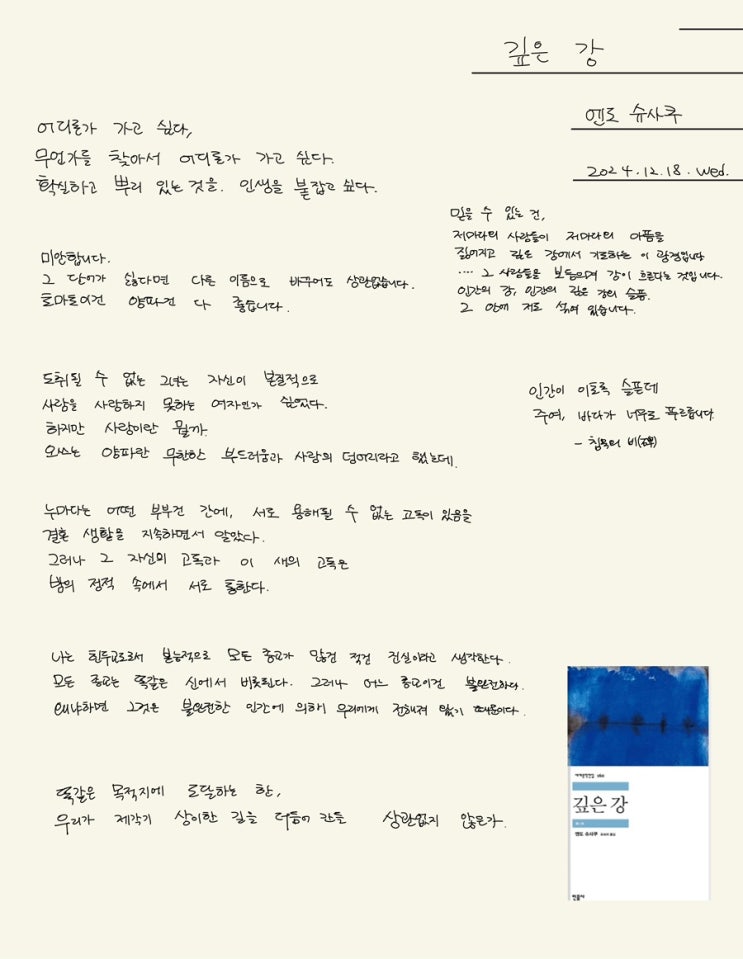 깊은 강
엔도 슈사쿠
2024.12.18. Wed.
어디론가 가고 싶다,
무언가를 찾아서 어디론가 가고 싶다.
확실하고 뿌리 있는 것을. 인생을 붙잡고 싶다.
믿을 수 있는 건,
저마다의 사람들이 저마다의 아픔을
짊어지고 깊은 강에서 기도하는 이 광경입니다
.... 그 사람들을 보듬으며 강이 흐른다는 것입니다.
인간의 강, 인간의 깊은 강의 슬픔.
그 안에 저도 섞여 있습니다.
미안합니다.
그 단어가 싫다면 다른 이름으로 바꾸어도 상관없습니다.
토마토이건 양파건 다 좋습니다.
도취될 수 없는 그녀는 자신이 본질적으로
사람을 사랑하지 못하는 여자인가 싶었다.
하지만 사랑이란 뭘까.
오쓰는 양파란 무한한 부드러움과 사랑의 덩어리라고 했는데.
인간이 이토록 슬픈데
주여, 바다가 너무도 푸르릅니다
- 침묵의 비(碑)
누마다는 어떤 부부건 간에, 서로 용해될 수 없는 고독이 있음을
결혼 생활을 지속하면서 알았다.
그러나 그 자신의 고독과 이 새의 고독은
밤의 정적 속에서 서로 통한다.
나는 힌두교도로서 본능적으로 모든 종교가 많건 적건 진실이라고 생각한다.
모든 종교는 똑같은 신에서 비롯된다. 그러나 어느 종교이건 불완전하다.
왜냐하면 그것은 불완전한 인간에 의해 우리에게 전해져 왔기 때문이다.
똑같은 목적지에 도달하는 한,
우리가 제각기 상이한 길을 더듬어 간들 상관없지 않은가.
세계문학전집 160
깊은 강
엔도 슈사쿠
민음사